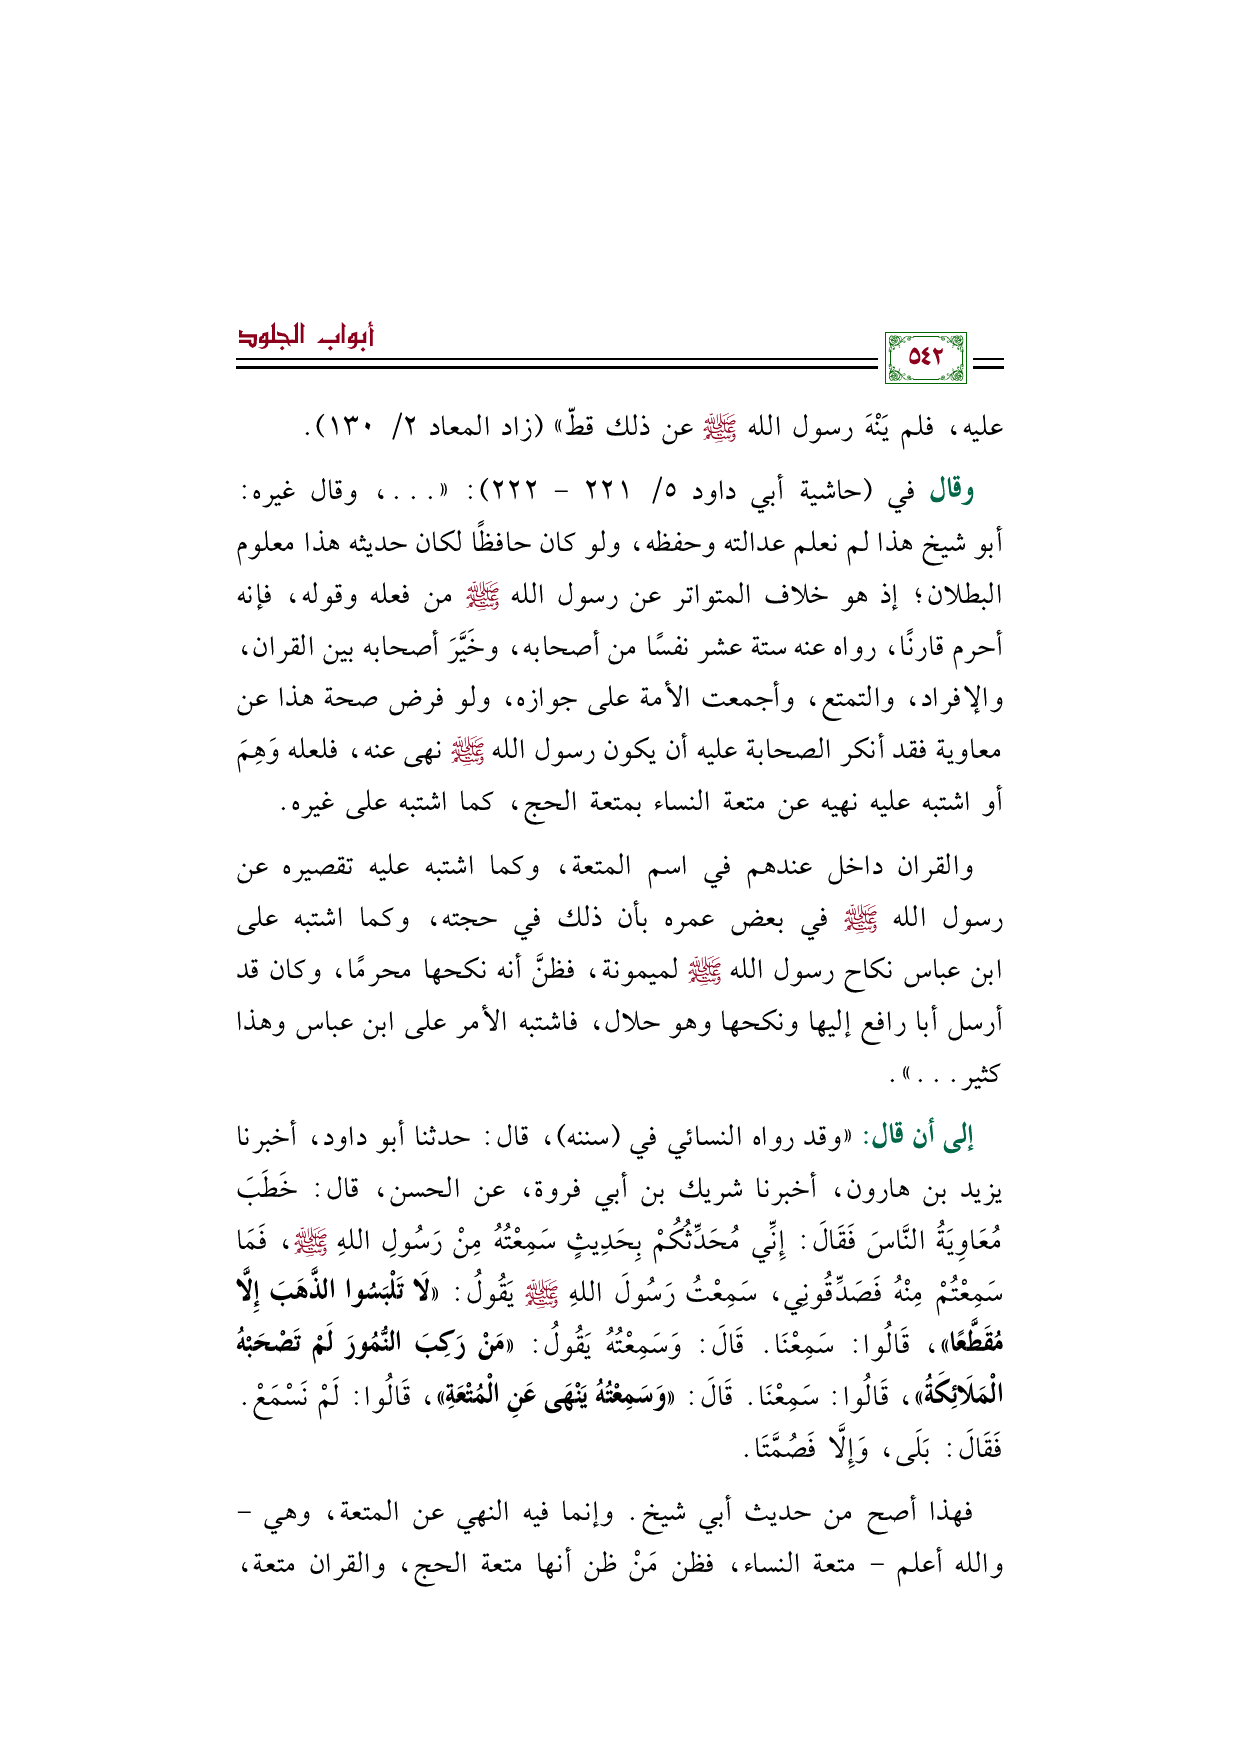 أبواب الجلود
٥٤٢
عليه، فلم يَنْهَ رسول الله ﷺ عن ذلك قطّ» (زاد المعاد ٢/ ١٣٠).
وقال في (حاشية أبي داود ٥/ ٢٢١ – ٢٢٢): «...، وقال غيره:
أبو شيخ هذا لم نعلم عدالته وحفظه، ولو كان حافظًا لكان حديثه هذا معلوم
البطلان؛ إذ هو خلاف المتواتر عن رسول الله ﷺ من فعله وقوله، فإنه
أحرم قارنًا، رواه عنه ستة عشر نفسًا من أصحابه، وخَيَّرَ أصحابه بين القران،
والإفراد، والتمتع، وأجمعت الأمة على جوازه، ولو فرض صحة هذا عن
معاوية فقد أنكر الصحابة عليه أن يكون رسول الله ﷺ نهى عنه، فلعله وَهِمَ
أو اشتبه عليه نهيه عن متعة النساء بمتعة الحج، كما اشتبه على غيره.
والقران داخل عندهم في اسم المتعة، وكما اشتبه عليه تقصيره عن
رسول الله ﷺ في بعض عمره بأن ذلك في حجته، وكما اشتبه على
ابن عباس نكاح رسول الله ﷺ لميمونة، فظنَّ أنه نكحها محرمًا، وكان قد
أرسل أبا رافع إليها ونكحها وهو حلال، فاشتبه الأمر على ابن عباس وهذا
كثير...».
إلى أن قال: «وقد رواه النسائي في (سننه)، قال: حدثنا أبو داود، أخبرنا
يزيد بن هارون، أخبرنا شريك بن أبي فروة، عن الحسن، قال: خَطَبَ
مُعَاوِيَةُ النَّاسَ فَقَالَ: إِنِّي مُحَدِّثُكُمْ بِحَدِيثٍ سَمِعْتُهُ مِنْ رَسُولِ اللهِ ﷺ، فَمَا
سَمِعْتُمْ مِنْهُ فَصَدِّقُونِي، سَمِعْتُ رَسُولَ اللهِ ﷺ يَقُولُ: «لَا تَلْبَسُوا الذَّهَبَ إِلَّا
مُقَطَّعًا»، قَالُوا: سَمِعْنَا. قَالَ: وَسَمِعْتُهُ يَقُولُ: «مَنْ رَكِبَ النُّمُورَ لَمْ تَصْحَبْهُ
الْمَلَائِكَةُ»، قَالُوا: سَمِعْنَا. قَالَ: «وَسَمِعْتُهُ يَنْهَى عَنِ الْمُتْعَةِ»، قَالُوا: لَمْ نَسْمَعْ.
فَقَالَ: بَلَى، وَإِلَّا فَصُمَّتَا.
فهذا أصح من حديث أبي شيخ. وإنما فيه النهي عن المتعة، وهي –
والله أعلم – متعة النساء، فظن مَنْ ظن أنها متعة الحج، والقران متعة،